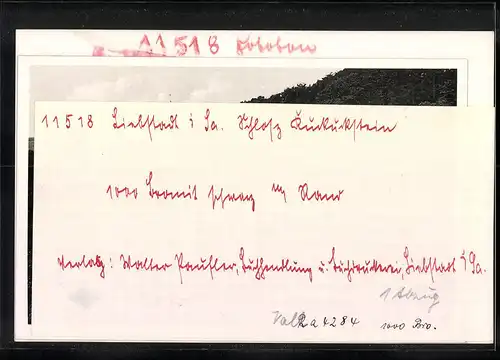 11518
11518 Liebstadt i Sa. Schloß Kuckuckstein
1000 Bromit schwarz m Rand
Verlag: Walter Paufler, Buchhandlung u. Buchdruckerei, Liebstadt i Sa.
1 Abzug
4284 1000 Bro.